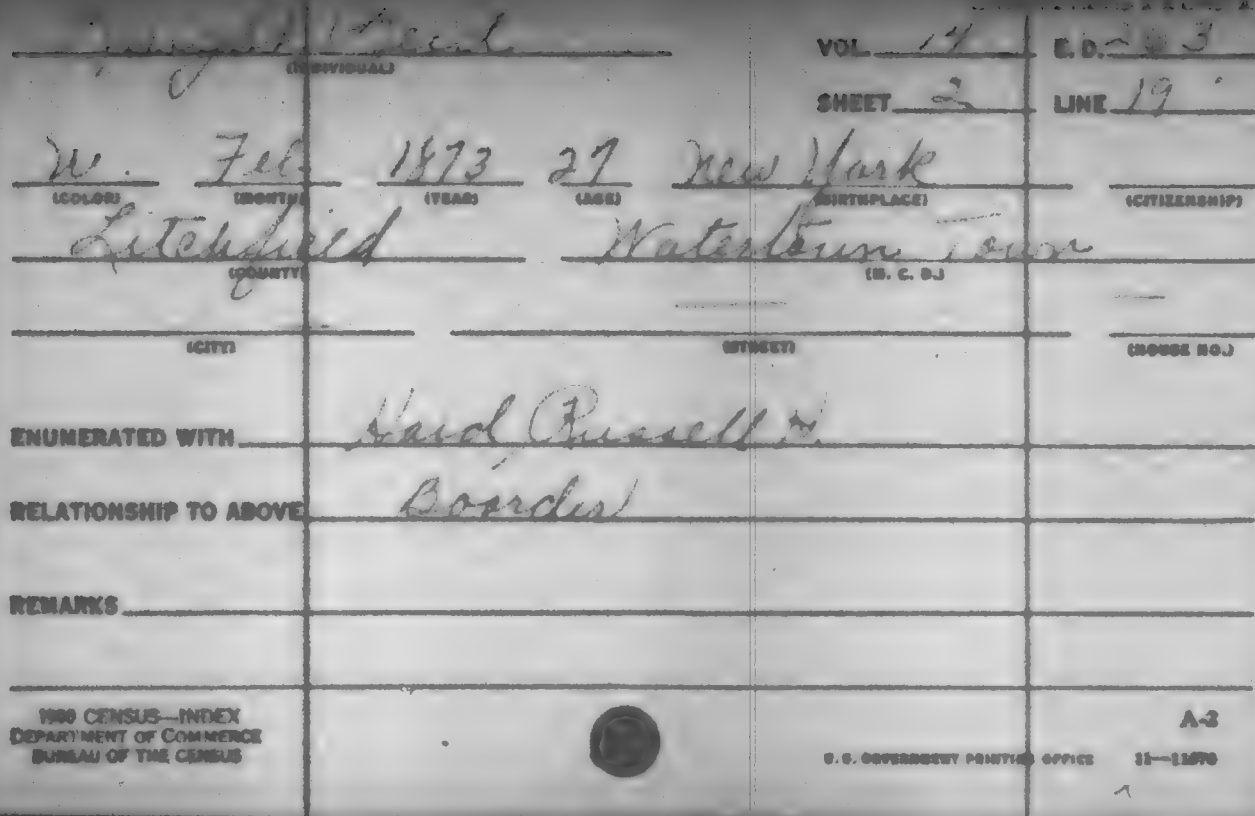 VOL. 14 E. D. 263
(INDIVIDUAL)
SHEET 2 LINE 19
W. Feb 1873 27 New York
(COLOR) (MONTH) (YEAR) (AGE) (BIRTHPLACE) (CITIZENSHIP)
Litchfield Watertown Town
(COUNTY) (M. C. D.)
(CITY) (STREET) (HOUSE NO.)
ENUMERATED WITH Hard, Russell
RELATIONSHIP TO ABOVE Boarder
REMARKS
1900 CENSUS—INDEX
DEPARTMENT OF COMMERCE
BUREAU OF THE CENSUS
A-2
U. S. GOVERNMENT PRINTING OFFICE 11—11570